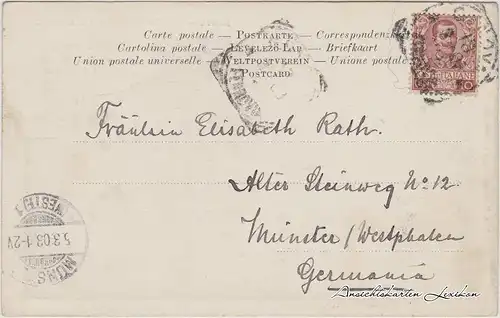 Carte postale — POSTKARTE — Correspondenzk
Cartolina postale — LEVELEZŐ-LAP — Briefkaart
Union postale universelle — WELTPOSTVEREIN — Unione posta
POSTCARD
POSTE ITALIANE
10
Fräulein Elisabeth Rath.
Alter Steinweg No 12.
Münster/Westphalen
Germania
MÜNS
(WESTF.) 1
5.3.03.1-2V
Ansichtskarten Lexikon